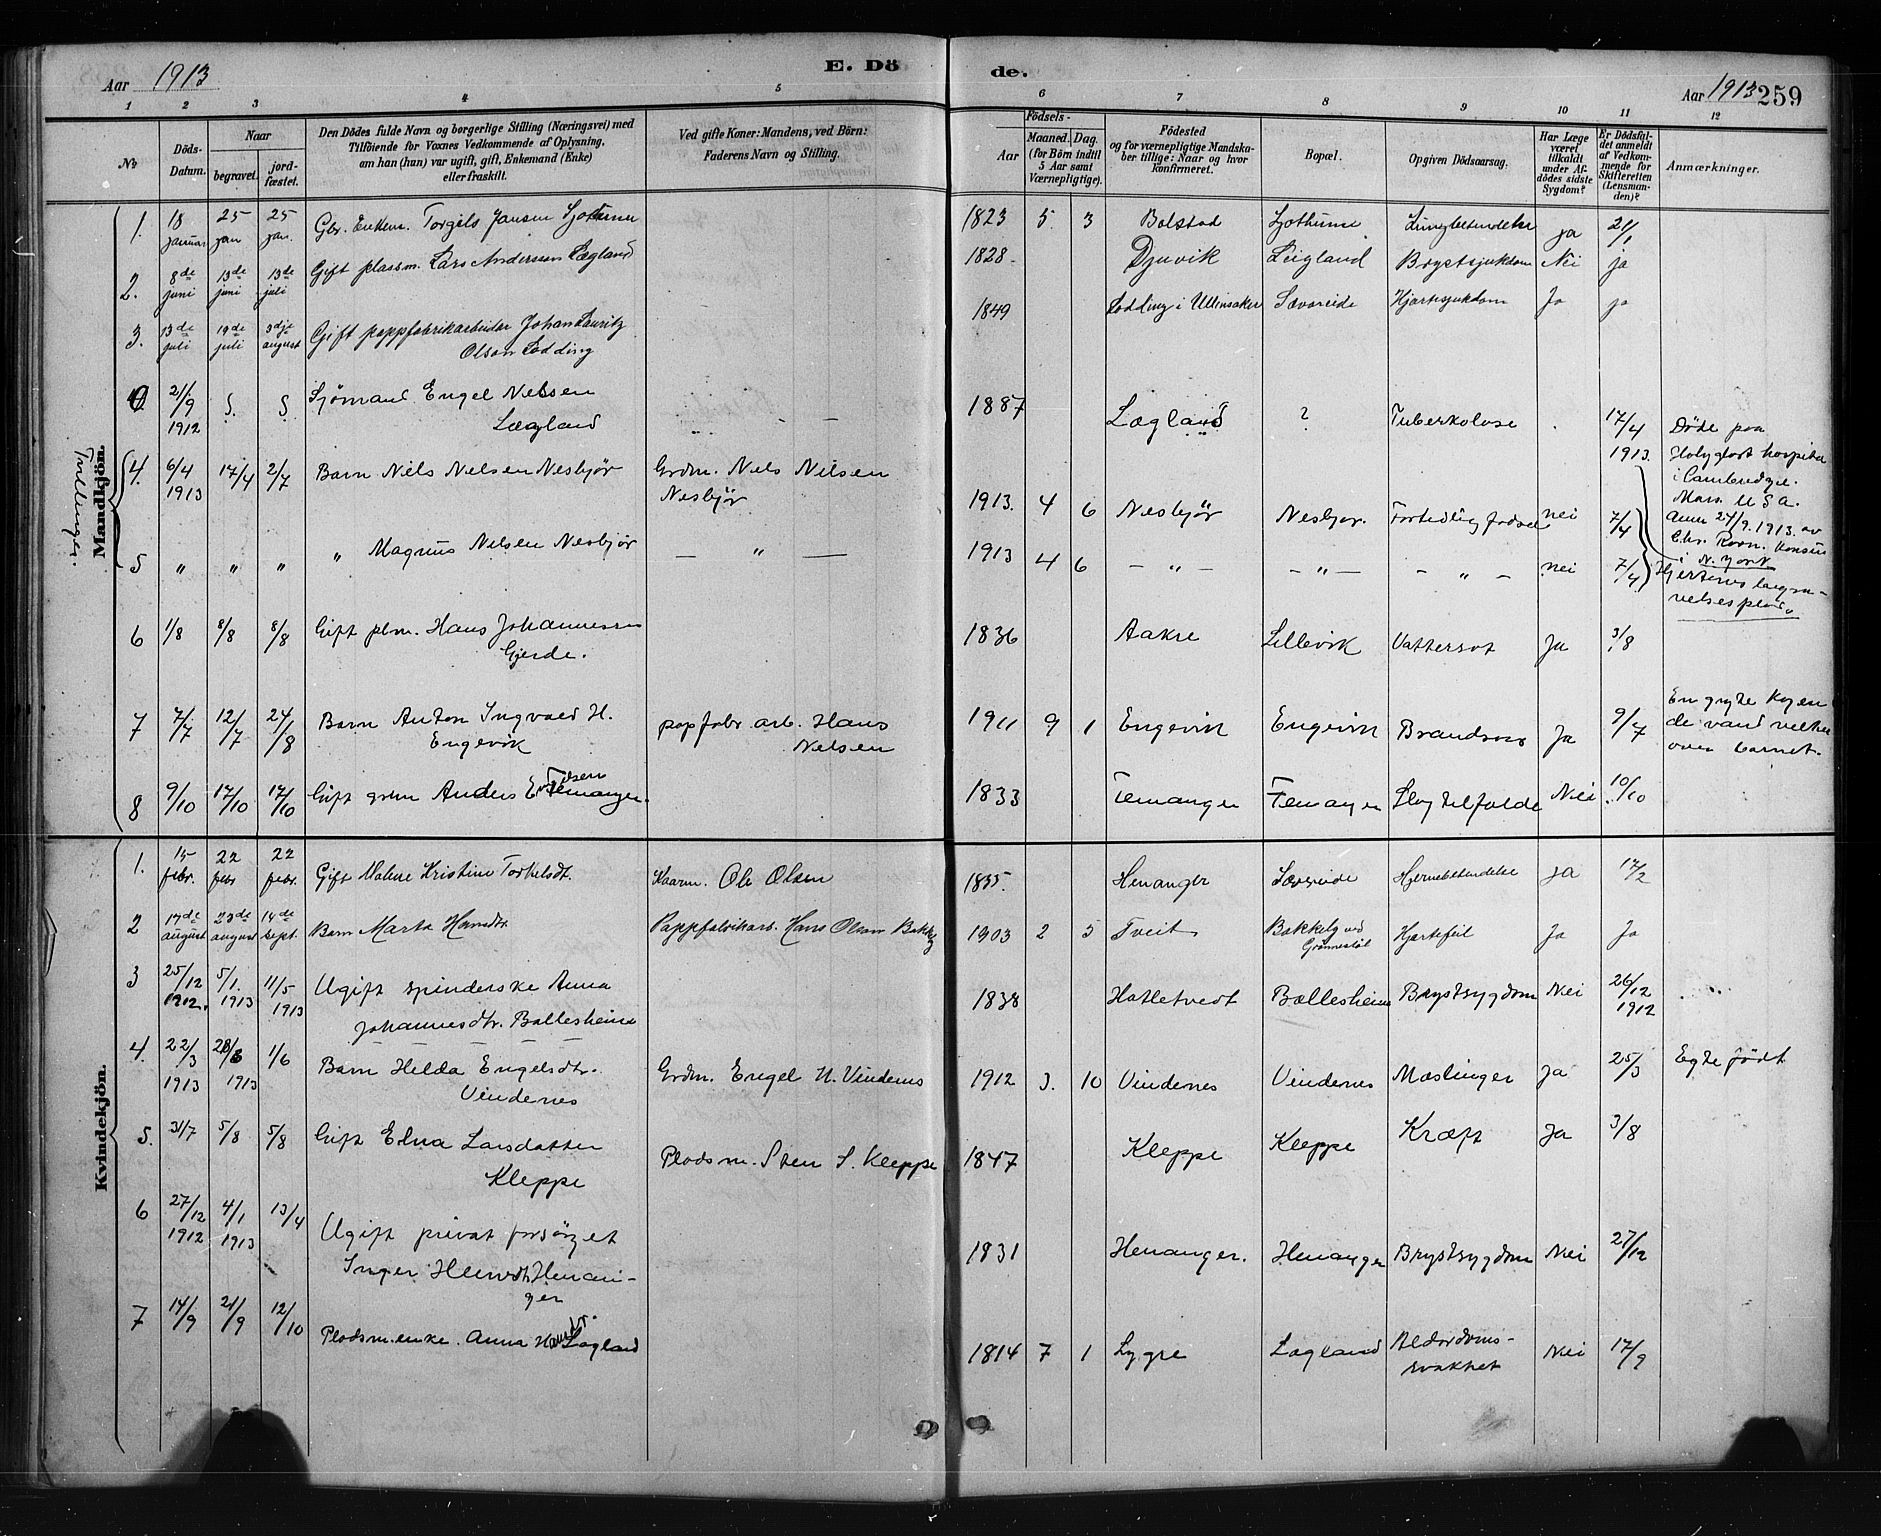 Aar 1913
E. Dö
de.
Aar 1913
259
1 2 3 4 5 6 7 8 9 10 11 12
No
Döds-Datum.
Naar
begravet.
jord-fæstet.
Den Dödes fulde Navn og borgerlige Stilling (Næringsvei) med
Tilföiende for Voxnes Vedkommende af Oplysning,
om han (hun) var ugift, gift, Enkemand (Enke)
eller fraskilt.
Ved gifte Koner: Mandens, ved Börn:
Faderens Navn og Stilling.
Födsels-
Aar
Maaned. Dag.
(for Börn indtil
5 Aar samt
Værnepligtige).
Födested
og for værnepligtige Mandska-
ber tillige: Naar og hvor
konfirmeret.
Bopæl.
Opgiven Dödsaarsag.
Har Læge
været
tilkaldt
under Af-
dödes sidste
Sygdom?
Er Dödsfal-
det anmeldt
af Vedkom-
mende for
Skifteretten
(Lensman-
den)?
Anmærkninger.
Mandkjön.
Tvillinger.
1. 18 januar 25 jan 25 jan. Gbr. Enkem. Torgils Jansen 1823 5. 3 Bolstad ja 21/1
2. 8de juni 13de juni 13de juli Gift plassm. Lars Andersen Lægland 1828 Djuvik Brystsjukdom Nei ja
3. 13de juli 19de juli 3dje august Gift pappfabrikarbeider Johan Lauritz
Olson Lødding 1849 Lødding i Ullinsaker Sævareide Hjartesjukdom Ja ja
21/9 1912 Sjømand Engel Nelsen
Lægland 1887 Lægland ? Tuberkolose 17/4 1913.
Døde paa
Holyghost hospital
i Cambridge.
Mass. U S A.
Anm 24/9. 1913. av
Chr. Ravn. Konsul
i N. York
4. 6/4 1913 17/4 2/7 Barn Nils Nelsen Nesbjør Grdm. Nels Nilsen
Nesbjør 1913. 4 6 Nesbjør Nesbjør. Fortidlig fødsel nei 7/4
5 " " " " Magnus Nelsen Nesbjør — " — 1913 4 6 — " — — " — — " — nei 7/4
6 1/8 8/8 8/8 Gift plm. Hans Johannessen
Gjerde. 1836 Aakre Lillevik Vattersot Ja 3/8
7 7/7 12/7 24/8 Barn Anton Ingvald H.
Engevik papfabr. arb. Hans
Nelsen 1911 9 1 Engevik Engevik Brandsaar Ja 9/7
En gryte kogen
de vand veltet
over barnet.
8 9/10 17/10 17/10 Gift grdm Anders
Femanger. 1833 Femanger Femanger Slagtilfælde Nei 10/10
Kvindekjön.
1. 15 febr. 22 febr 22 febr. Gift Malene Kristine Torkelsdt. Kaarm. Ole Olsen 1835. Henanger Sævareide Hjernebetendelse ja 17/2
2 17de august 23de august 14de sept. Barn Marta Hansdt. Pappfabrikarb. Hans Olsen 1903 2 5 Tveit ved Hjartefeil Ja Ja
3 25/12 1912. 5/1. 1913 11/5 1913 Ugift spinderske Anna
Johannesdtr. Ballesheim 1838 Hatletvedt Bællesheim Brystsygdom Nei 26/12 1912
4. 22/3 1913 1913 1/6 Barn Helda Engelsdtr.
Vindenes Grdm. Engel N. Vindenes 1912 3. 10 Vindenes Vindenes Mæslinger Ja 25/3 Egte født
5. 31/7 5/8 5/8 Gift Elna Larsdatter
Kleppe Pladsm. Sten S. Kleppe 1847 Kleppe Kleppe Kræft Ja 3/8
6 27/12 1912 4/1 1913 13/4 Ugift privat forsørget
Inger Henanger 1831 Henanger. Henanger Brystsygdom Nei 27/12
7 14/9 21/9 12/10 Pladsm.enke. Anna Hansdtr. Lægland 1814 7 1 Lygre Lægland Alderdoms-
svakhet Nei 17/9